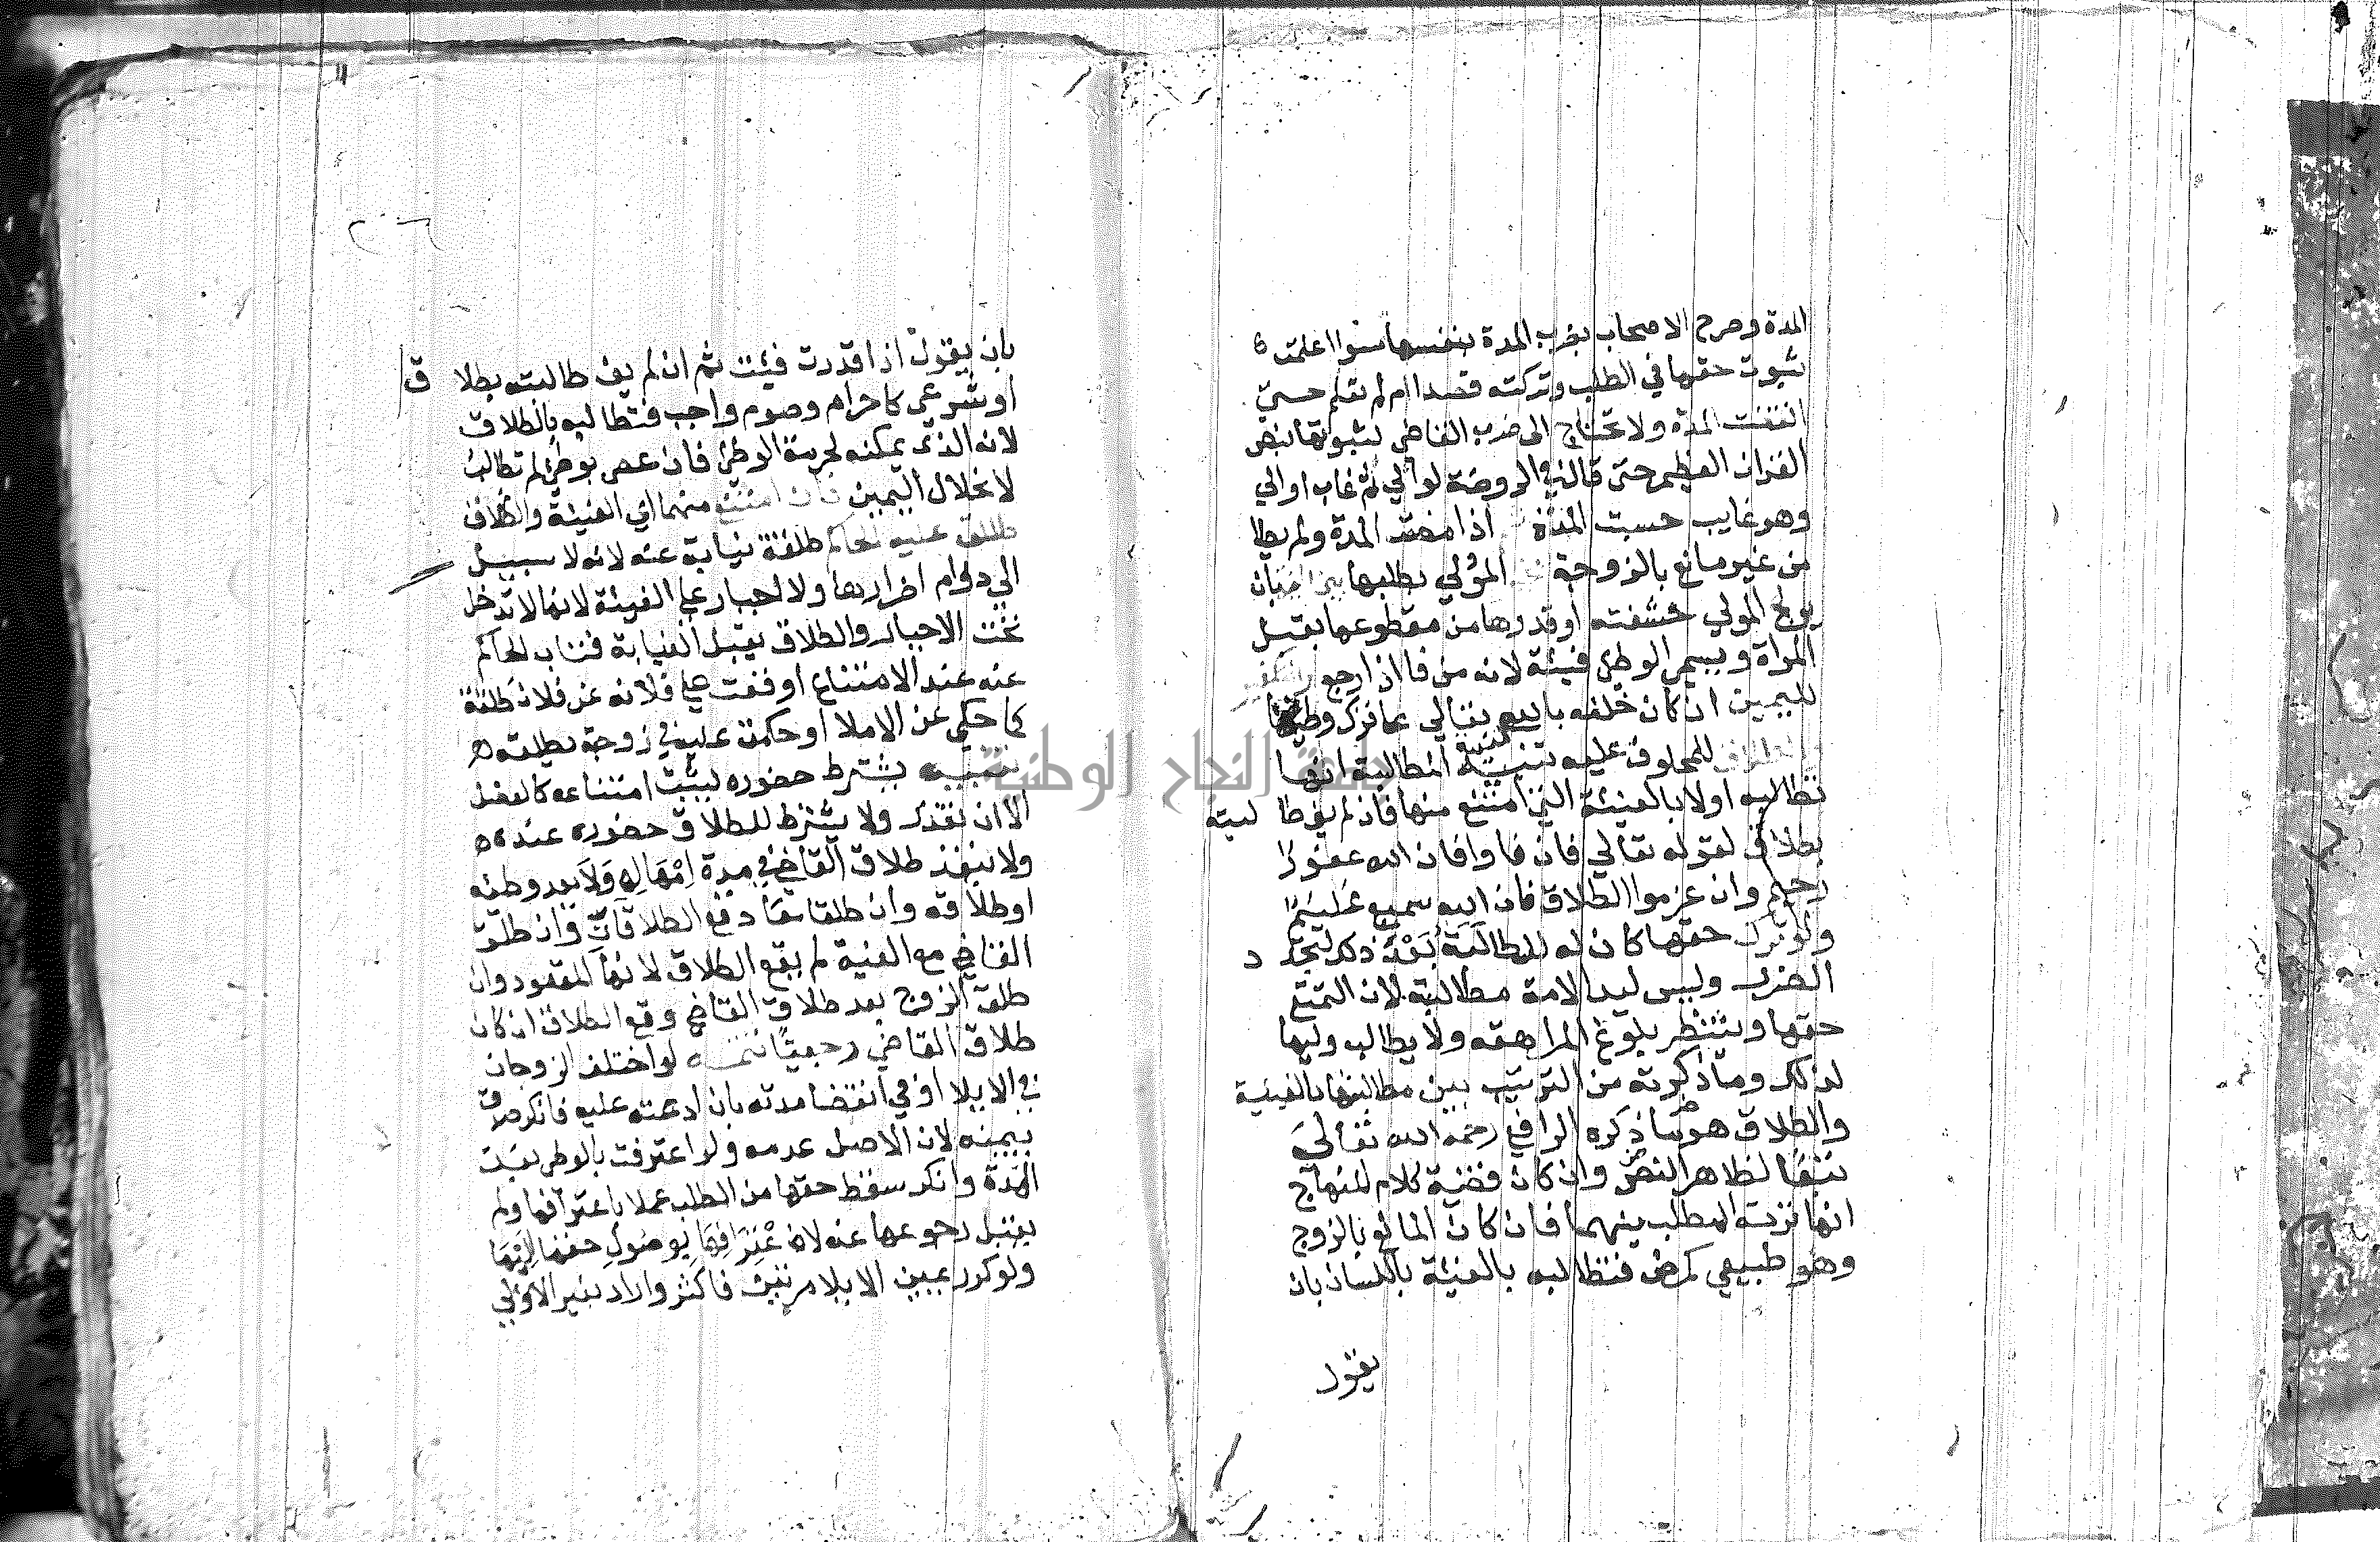 المدة وصرح الاصحاب بضرب المدة بنفسها سوا اعلمت
ثبوت حقها في الطلب وتركته قصدا ام لم تعلم حتي
انقضت المدة ولا تحتاج الى ضرب القاضي لثبوتها بنص
القران العظيم حتى قال في الروضة لو الي ثم غاب او الي
وهو غايب حسبت المدة اذا مضت المدة ولم يطا
من غير مانع بالزوجة المولي بطلبها بين ان
يولج المولي حشفته او قدرها من مقطوعها بقبل
المراة ويسمي الوطئ فيئة لانه من فا اذ ارجع
لليمين ان كان حلفه بالله تعالي علي ترك وطئها
للمحلوف عليه تنبيه المطالبة انها
تطالبه اولا بالفيئة التي امتنع منها فان لم يف طا لبته
بطلاق لقوله تعالي فان فاوا فان الله غفورا
رحيم وان عزموا الطلاق فان الله سميع عليم
ولو ترك حقها كان له المطالبة بعد ذلك لتجد د
الضرر وليس لسيد الامة مطالبته لان التمتع
حقها وينتظر بلوغ المراهقه ولا يطالب وليها
لذلك وما ذكرته من الترتيب بين مطالبتها بالفيئة
والطلاق هو ما ذكره الرافعي رحمه الله تعالى
تبعا لظاهر النص وان كان قضية كلام المنهاج
انها تردد الطلب بينهما فان كان المانع بالزوج
وهو طبيعي كمرض فتطالبه بالفيئة باللسان بان
يقول
٢٠٦
بان يقول اذا قدرت فئت ثم ان لم يف طالبته بطلا ق
او شرعي كاحرام وصوم واجب فتطالبه بالطلاق
لانه الذي يمكنه لحرمة الوطئ فان عصى بوطئ لم تطالب
لانحلال اليمين فان امتنع منهما اي الفيئة والطلاق
طلق عليه الحاكم طلقة نيابة عنه لانه لا سبيل
الي دوام اضرارها ولا اجبار علي الفيئة لانها لا تدخل
تحت الاجبار والطلاق يقبل النيابة فناب الحاكم
عنه عند الامتناع اوقعت علي فلانه عن فلان طلقة
كما حكي عن الاملا او حكمت عليه في زوجته بطلقه
تنبيه يشترط حضوره ليثبت امتناعه كالعضل
الا ان تعذر ولا يشترط للطلاق حضوره عنده
ولا ينفذ طلاق القاضي في مدة امهاله ولا بعد وطئه
او طلاقه وان طلقا معا دفع الطلاقان وان طلق
القاضي مع الفيئة لم يقع الطلاق لانها المقصود وان
طلق الزوج بعد طلاق القاضي وقع الطلاق ان كان
طلاق القاضي رجعيا تتمة لو اختلف الزوجان
في الايلا او في انقضا مدته بان ادعته عليه فانكر صدق
بيمينه لان الاصل عدمه ولو اعترفت بالوطئ بعد
المدة وانكر سقط حقها من الطلب عملا باعترافها ولم
يقبل رجوعها عنه لاعترافها بوصول حقها اليها
ولو كرر يمين الايلا مرتين فاكثر واراد بغير الاولي
جامعة النجاح الوطنية